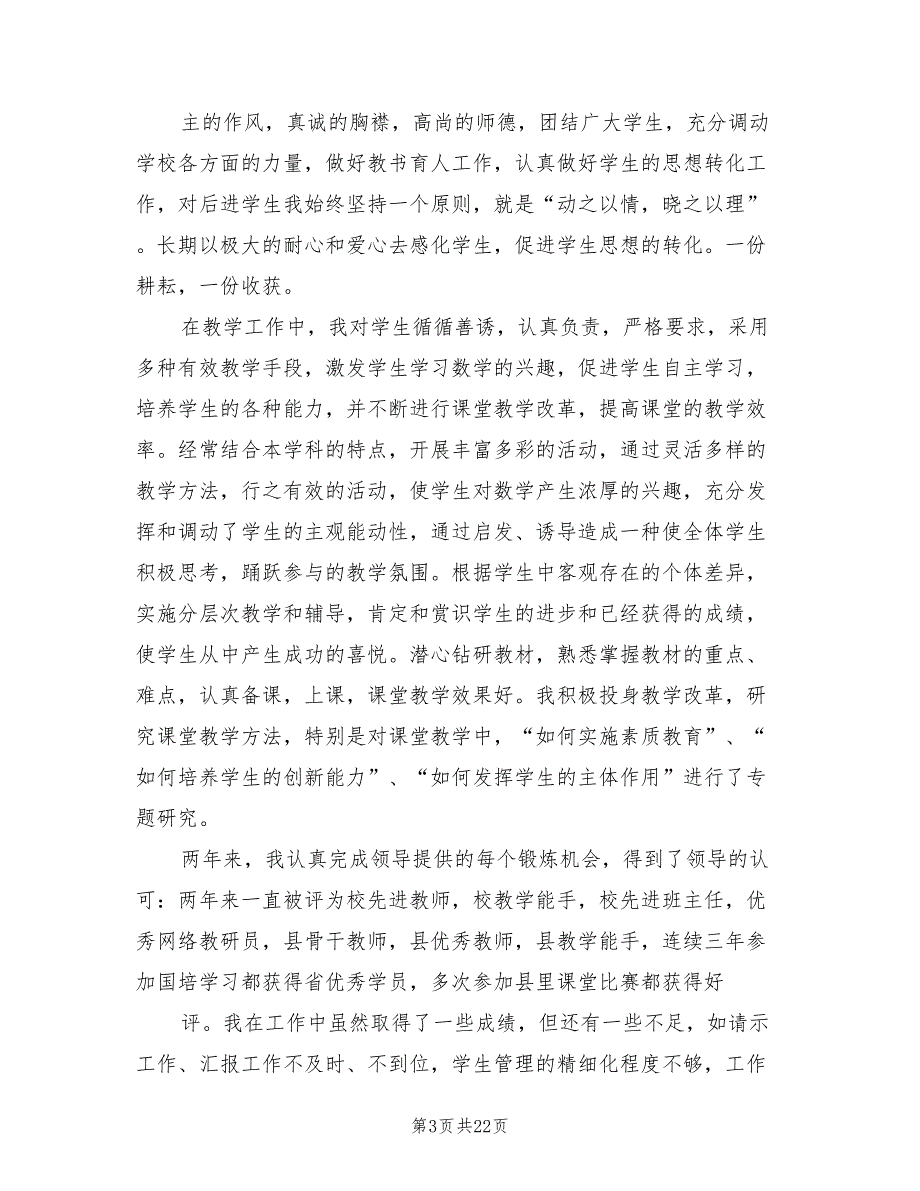 主的作风，真诚的胸襟，高尚的师德，团结广大学生，充分调动
学校各方面的力量，做好教书育人工作，认真做好学生的思想转化工
作，对后进学生我始终坚持一个原则，就是“动之以情，晓之以理”
。长期以极大的耐心和爱心去感化学生，促进学生思想的转化。一份
耕耘，一份收获。
在教学工作中，我对学生循循善诱，认真负责，严格要求，采用
多种有效教学手段，激发学生学习数学的兴趣，促进学生自主学习，
培养学生的各种能力，并不断进行课堂教学改革，提高课堂的教学效
率。经常结合本学科的特点，开展丰富多彩的活动，通过灵活多样的
教学方法，行之有效的活动，使学生对数学产生浓厚的兴趣，充分发
挥和调动了学生的主观能动性，通过启发、诱导造成一种使全体学生
积极思考，踊跃参与的教学氛围。根据学生中客观存在的个体差异，
实施分层次教学和辅导，肯定和赏识学生的进步和已经获得的成绩，
使学生从中产生成功的喜悦。潜心钻研教材，熟悉掌握教材的重点、
难点，认真备课，上课，课堂教学效果好。我积极投身教学改革，研
究课堂教学方法，特别是对课堂教学中，“如何实施素质教育”、“
如何培养学生的创新能力”、“如何发挥学生的主体作用”进行了专
题研究。
两年来，我认真完成领导提供的每个锻炼机会，得到了领导的认
可：两年来一直被评为校先进教师，校教学能手，校先进班主任，优
秀网络教研员，县骨干教师，县优秀教师，县教学能手，连续三年参
加国培学习都获得省优秀学员，多次参加县里课堂比赛都获得好
评。我在工作中虽然取得了一些成绩，但还有一些不足，如请示
工作、汇报工作不及时、不到位，学生管理的精细化程度不够，工作
第3页共22页